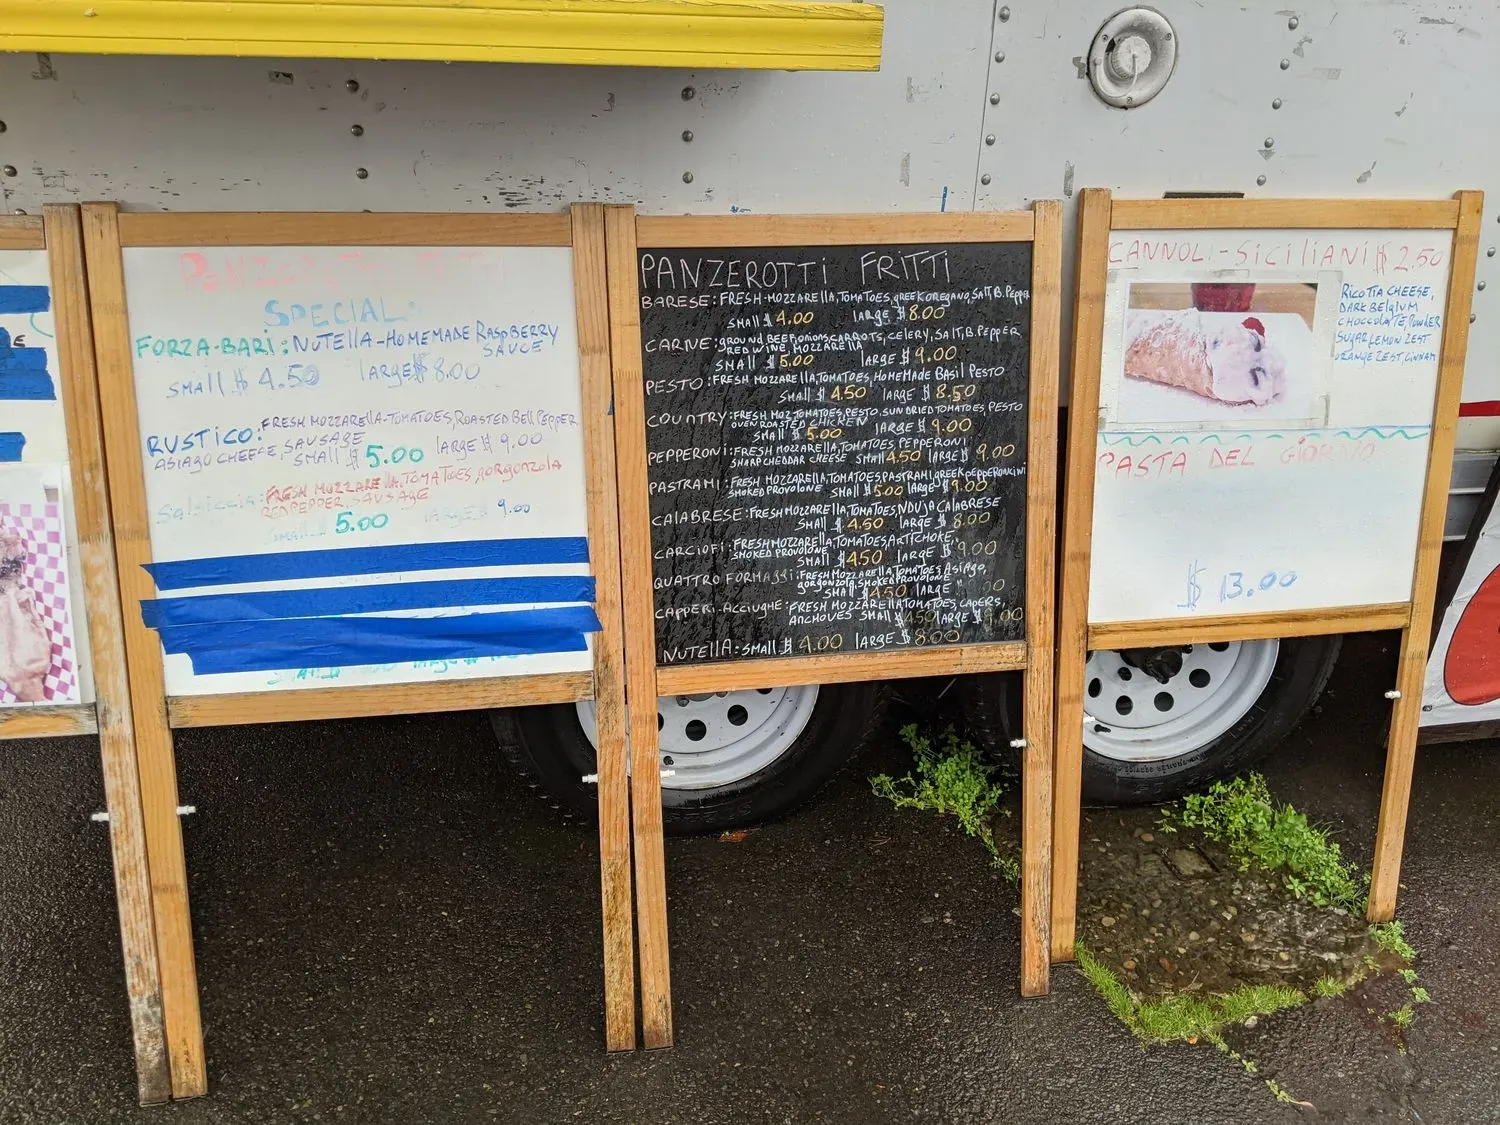 SPECIAL
FORZA-BARI: NUTELLA-HOMEMADE RASPBERRY
SAUCE
SMALL $ 4.50 LARGE $ 8.00
RUSTICO: FRESH MOZZARELLA-TOMATOES, ROASTED BELL PEPPER
ASIAGO CHEESE, SAUSAGE
SMALL $ 5.00 LARGE $ 9.00
Salsiccia: FRESH MOZZARELLA, TOMATOES, gorgonzola
RED PEPPER, SAUSAGE
SMALL $ 5.00 LARGE $ 9.00
PANZEROTTI FRITTI
BARESE: FRESH-MOZZARELLA, TOMATOES, greek oregano, Salt, B. Pepper
SMALL $ 4.00 LARGE $ 8.00
CARNE: ground BEEF, onions, CARROTS, celery, SalT, B. PEPPER
RED WINE, MOZZARELLA
SMALL $ 5.00 LARGE $ 9.00
PESTO: FRESH MOZZARELLA, TOMATOES, HOMEMADE BASIL PESTO
SMALL $ 4.50 LARGE $ 8.50
COUNTRY: FRESH MOZ, TOMATOES, PESTO, SUN DRIED TOMATOES, PESTO
OVEN ROASTED CHICKEN
SMALL $ 5.00 LARGE $ 9.00
PEPPERONI: FRESH MOZZARELLA, TOMATOES, PEPPERONI
SHARP CHEDDAR CHEESE SMALL $ 4.50 LARGE $ 9.00
PASTRAMI: FRESH MOZZARELLA, TOMATOES, PASTRAMI, greek pepperoncini
SMOKED PROVOLONE SMALL $ 5.00 LARGE $ 9.00
CALABRESE: FRESH MOZZARELLA, TOMATOES, NDUJA CALABRESE
SMALL $ 4.50 LARGE $ 8.00
CARCIOFI: FRESH MOZZARELLA, TOMATOES, ARTICHOKE,
SMOKED PROVOLONE
SMALL $ 4.50 LARGE $ 9.00
QUATTRO FORMAGGI: FRESH MOZZARELLA, TOMATOES, ASIAGO,
gorgonzola, SMOKED PROVOLONE
SMALL $ 4.50 LARGE
CAPPERI-ACCIUGHE: FRESH MOZZARELLA, TOMATOES, CAPERS,
ANCHOVIES SMALL $ 4.50 LARGE $ 9.00
NUTELLA: SMALL $ 4.00 LARGE $ 8.00
CANNOLI-SICILIANI $ 2.50
RICOTTA CHEESE,
DARK BELGIUM
CHOCCOLATE, POWDER
SUGAR, LEMON ZEST
ORANGE ZEST, CINNAM
PASTA DEL GIORNO
$ 13.00